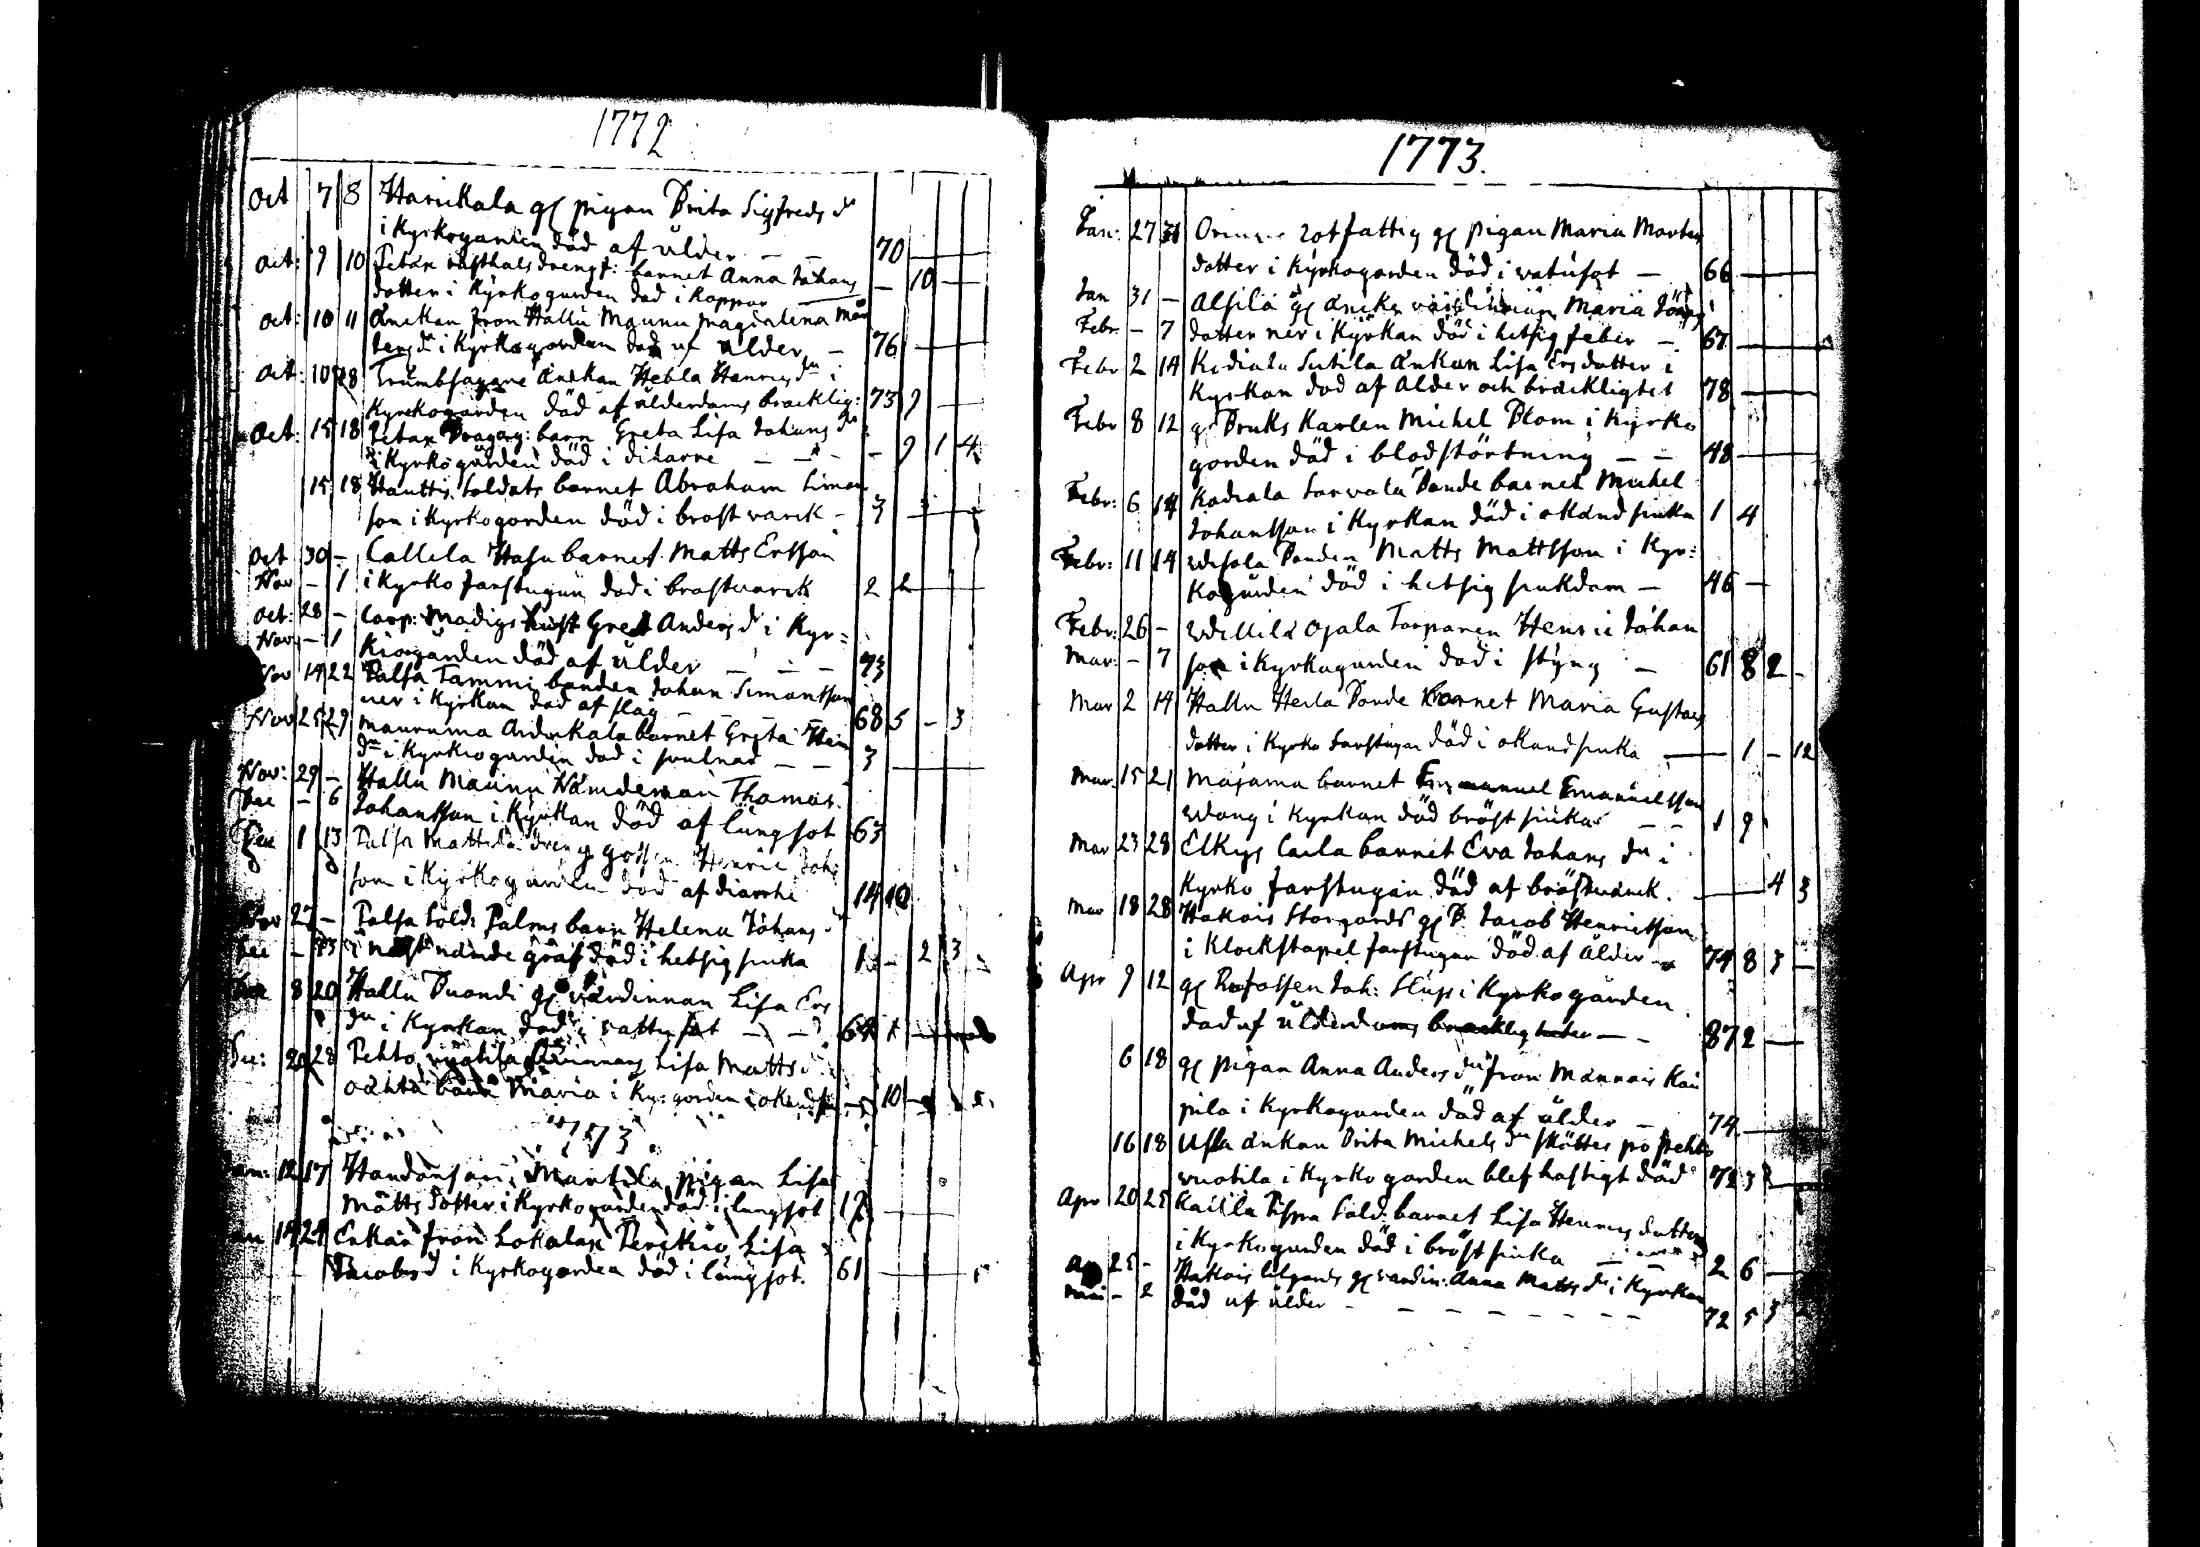 1772
oct 7 8 Harickala gl pigan Brita Sigfreds dr
i Kyrkogården död af ålder - - 70
oct: 9 10 Petän rusthals drengs: barnet Anna Johans
dotter i Kyrkogården död i Koppor - 10
oct: 10 11 Änckan från Hallu Maunu Magdalena
i Kyrkogården död af ålder - 76
oct: 10 18 änckan Hebla Henrics dr i
Kyrckogården död af ålderdoms bräcklig: 73 9
oct: 15 18 Petän barn Greta Lisa Johans dr
i Kyrkogården död i diharne - - - 9 1 4
15 18 Hauttis Soldats barnet Abraham Simons
son i Kyrkogården död i bröst värck - 3
oct 30 - Callela Hasu barnet Matts Ersson
Nov - 1 i Kyrko farstugun död i bröstvärck 2 2
oct: 28 - Corp: Madigs Anders dr i Kyr=
Nov - 1 kiogården död af ålder - - - 73
Nov 14 22 Palsa Tammi bonden Johan Simonsson
ner i Kyrkan död af slag - - - 68 5 - 3
Nov 25 29 barnet Greta
dr i Kyrkiogården död i - - 3
Nov: 29 - Hallu Maunu Nämdeman Thomas
Dec - 6 Johansson i Kyrkan död af lungsot 63
Dec 1 13 Palsa Mattila dreng gossen Henric Joh:
son i Kyrkogården död af diarrhe 14 10
Nov 27 - Palsa Sold: Palms barn Helena Johans dr
Dec - 13 i näst nämde graf död i hetsig siuka 1 - 2 3
Dec 8 20 Hallu gl värdinnan Lisa Ers
dr i Kyrkan död i vattusot - - 64
Dec: 20 28 Pehto vuotila Lisa Matts dr
oächta barn Maria i Ky: gården i okänd - 10
1773
Jan: 12 17 Handonsari Mantila pigan Lisa
Matts dotter i Kyrkogården död i lungsot 17
Jan 14 24 Enkan från Lokalax Lisa
Jacobs d i Kyrkogården död i lungsot. 61
1773.
Jan: 27 31 rotfattig gl pigan Maria Mårtens
dotter i Kyrkogården död i vatusot - 66
Jan 31 - Alsila gl änke värdinnan Maria
Febr. - 7 dotter ner i Kyrkan död i hetsig feber - 67
Febr 2 14 Kodiala Sutila Änkan Lisa Ersdotter i
Kyrkan död af ålder och bräcklighet 78
Febr 8 12 gl Bruks Karlen Michel Blom i Kyrko
gorden död i blodstörtning - - 48
Febr: 6 14 Kodiala Sarvala Bonde barnet Michel
Johansson i Kyrkan död i okänd siuka 1 4
Febr: 11 14 Bonden Matts Mattsson i Kyr=
kogården död i hetsig siukdom - 46 -
Febr: 26 - Willilä Ojala Torparen Henric Johan
Mar: - 7 son i Kyrkogården död i styng - 61 8 2 -
Mar 2 14 Hallu Heila Bonde barnet Maria Gustavs
dotter i Kyrko farstugan död i okänd siuka - 1 - 12
Mar. 15 21 Majama barnet Emanuel Emanuelsson
Wang i Kyrkan död bröst siuka - - 1 9
Mar 23 28 Elkys Caila barnet Eva Johans dr i
Kyrko farstugan död af bröstvärck. - 4 3
Mar 18 28 Hakois Storgårds gl B. Jacob Henricsson
i Klockstapel farstugan död af ålder - 74 8 3 -
Apr 9 12 gl Joh: i Kyrkogården
död af ålderdoms bräckligheter - - 87 2
6 18 gl pigan Anna Anders dr från Männäis Kau
pila i Kyrkogården död af ålder - 74
16 18 Usla änkan Brita Michels dr skättes på Pehto
vuotila i Kyrkogården blef hastigt död 72 3
Apr 20 25 Kaicila Sold: barnet Lisa Henrics dotter
i Kyrkogården död i bröst siuka - 2 6
Ap 25 - Hakois lilgårds gl värdin: Anna Matts dr i Kyrkan
Maii - 2 död af ålder - - - - - - - 72 5 3